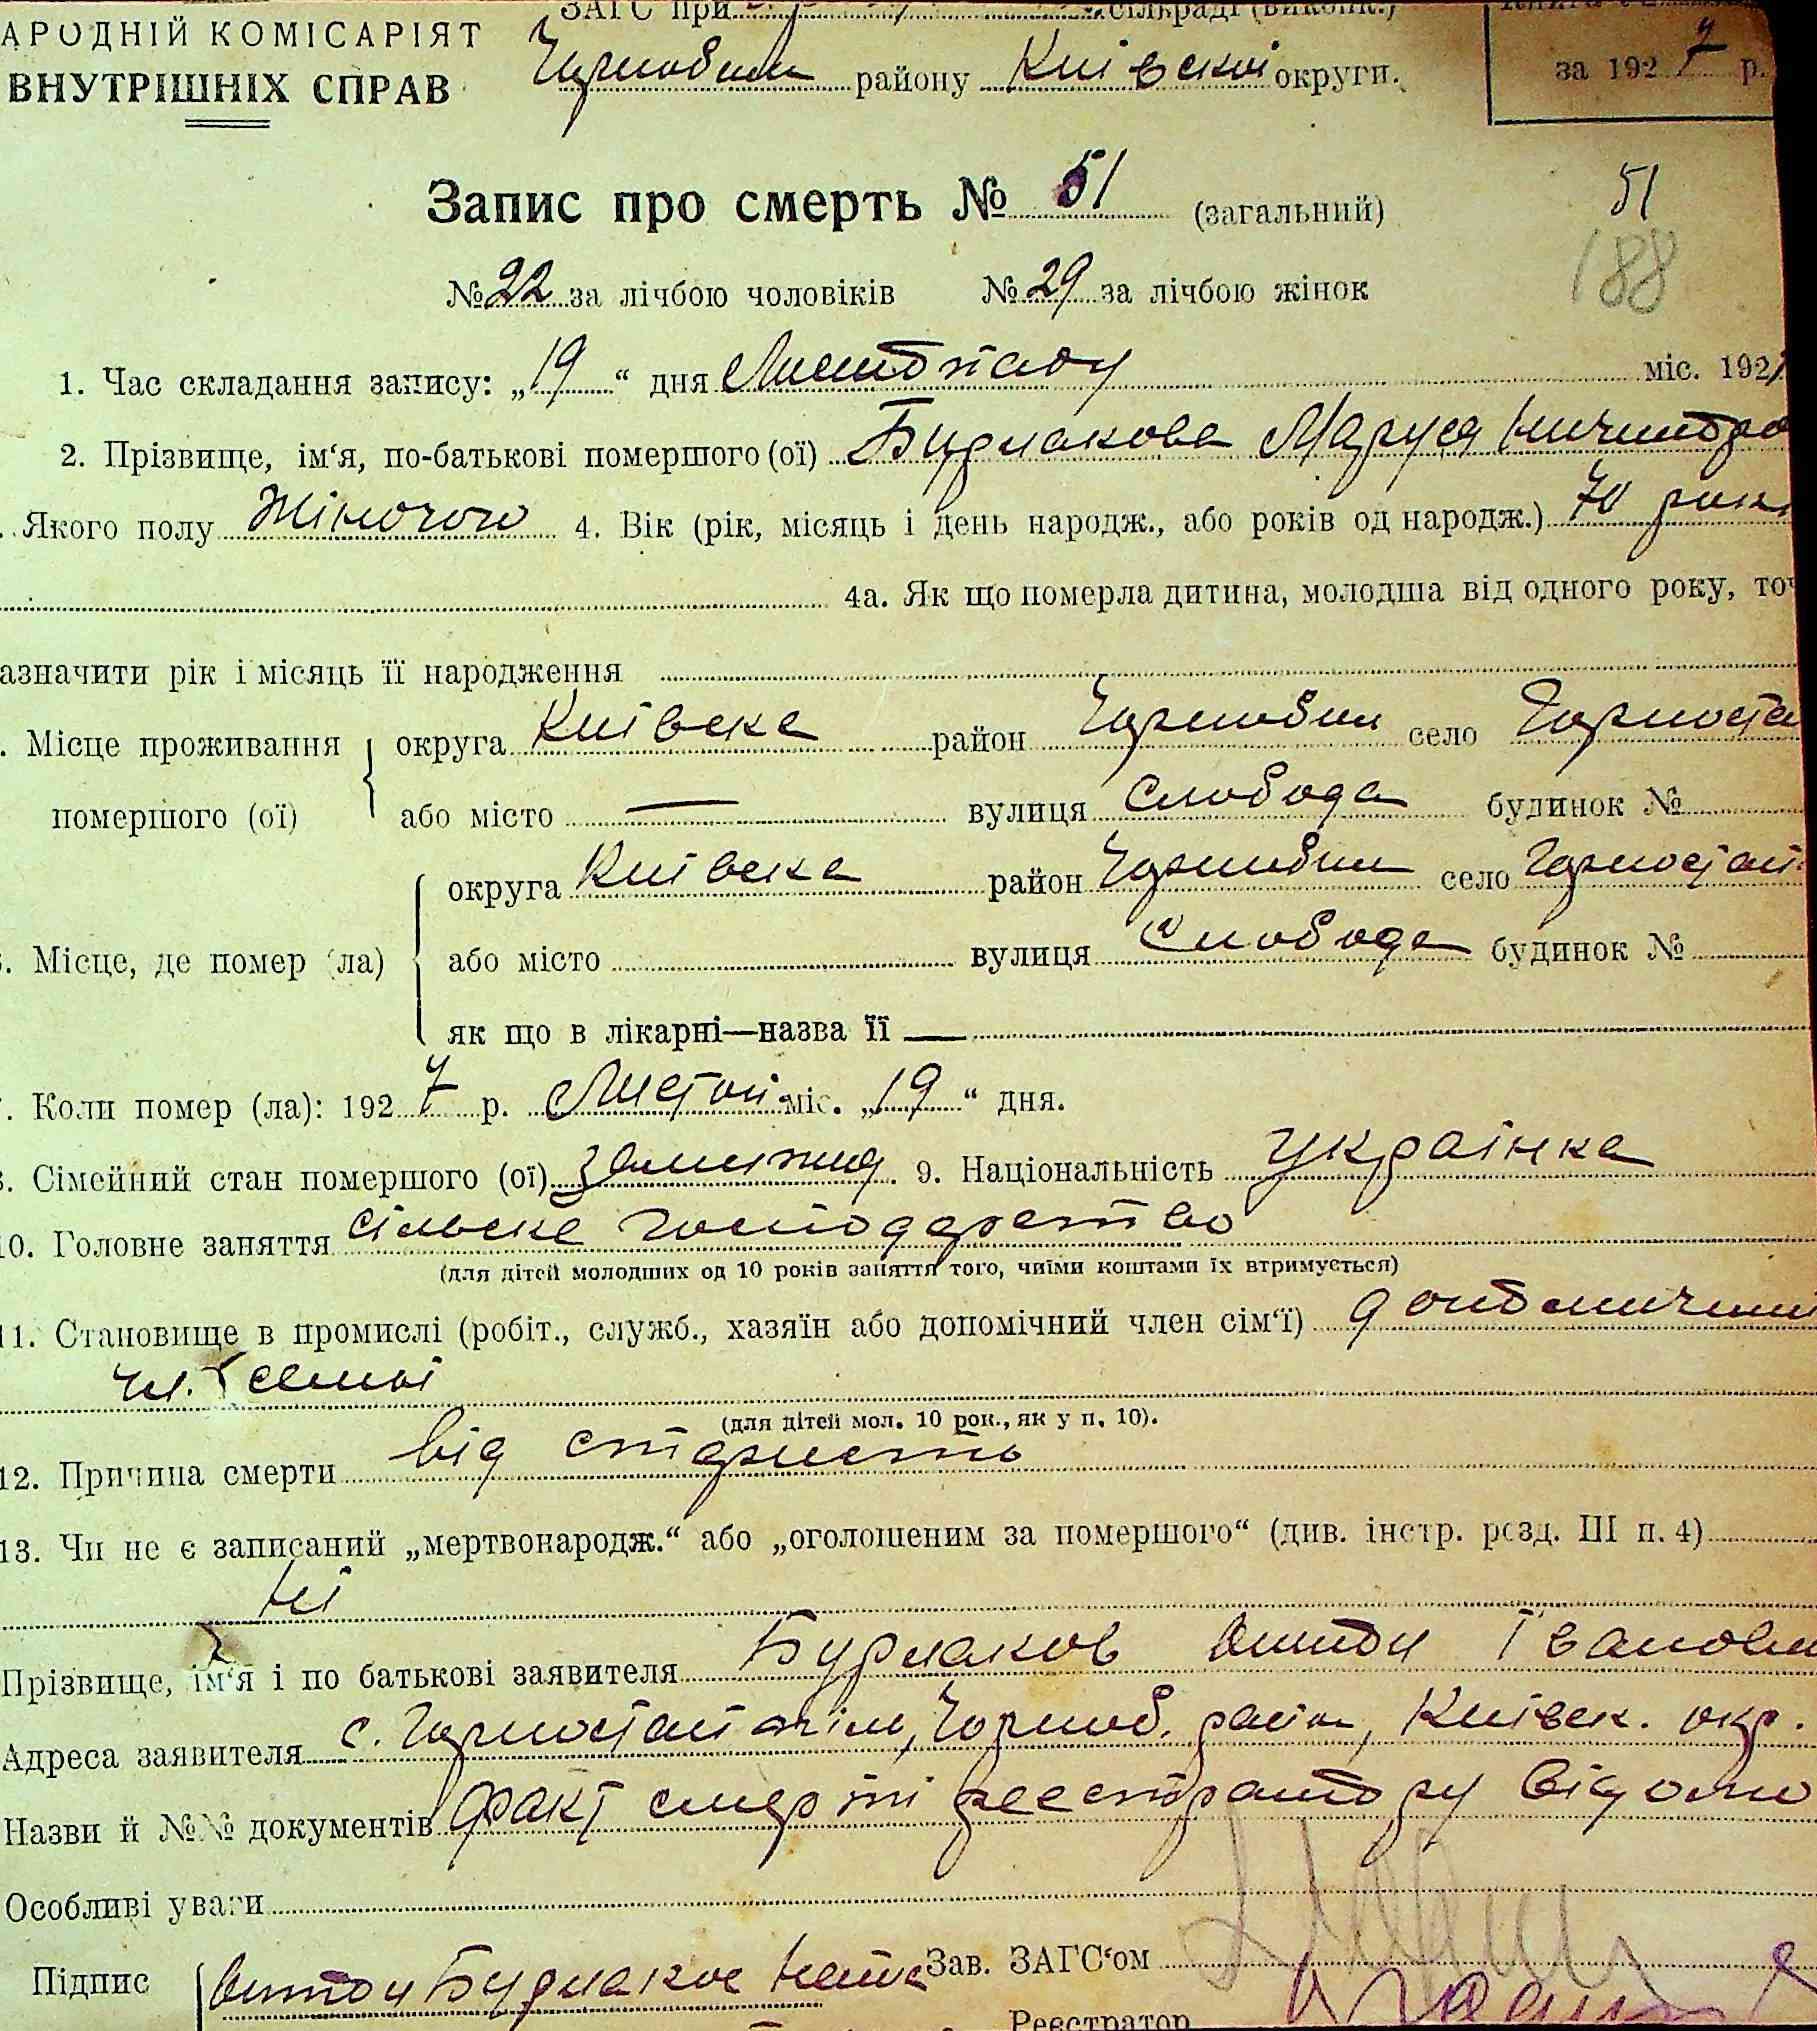 АРОДНІЙ КОМІСАРІЯТ
ВНУТРІШНІХ СПРАВ
ЗАГС при сільраді (виконк.)
району Київської округи.
за 1927 р.
Запис про смерть № 51 (загальний)
51
188
№ 22 за лічбою чоловіків № 29 за лічбою жінок
1. Час складання запису: „19“ дня Листопаду міс. 192
2. Прізвище, ім‘я, по-батькові помершого (ої) Бурлакова Маруся
Якого полу Жіночого 4. Вік (рік, місяць і день народж., або років од народж.) 70 рок
4а. Як що померла дитина, молодша від одного року, точ
азначити рік і місяць її народження
. Місце проживання округа Київска район Чорнобил село Горноста
помершого (ої) або місто — вулиця Слобода будинок №
округа Київска район Чорнобил село Горностай
. Місце, де помер (ла) або місто вулиця Слобода будинок №
як що в лікарні—назва її —
. Коли помер (ла): 1927 р. Листоп. міс. „19“ дня.
. Сімейний стан помершого (ої) замужня. 9. Національність українка
10. Головне заняття сільске господарство
(для дітей молодших од 10 років заняття того, чиїми коштами їх втримується)
11. Становище в промислі (робіт., служб., хазяїн або допомічний член сім‘ї)
чл. семьі
(для дітей мол. 10 рок., як у п. 10).
12. Причина смерти від старость
13. Чи не є записаний „мертвонародж.“ або „оголошеним за помершого“ (див. інстр. розд. III п. 4)
Ні
Прізвище, ім‘я і по батькові заявителя Бурлаков Івано
Адреса заявителя с. Горностайпіль, Чорноб. район, Київск. окр.
Назви й №№ документів Факт смерті реестратору відомо
Особливі уваги
Підпис Бурлаков Зав. ЗАГС‘ом
Реєстратор